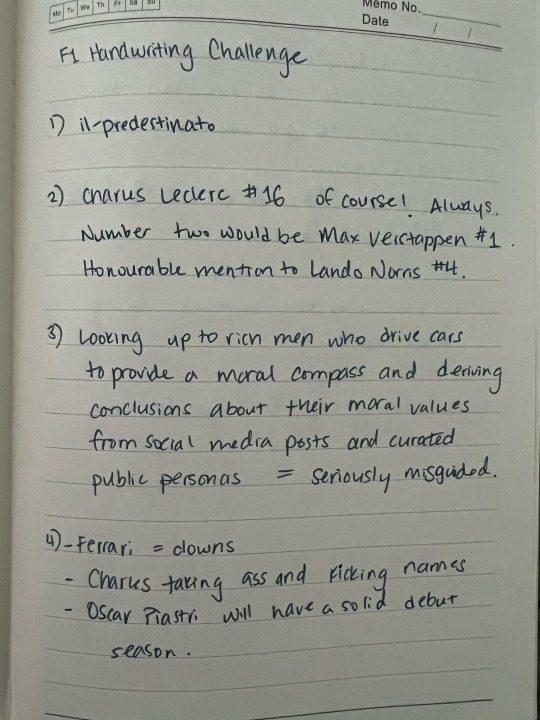 Mo Tu We Th Fr Sa Su
Memo No.
Date / /
F1 Handwriting Challenge
1) il-predestinato
2) Charles Leclerc #16 of course! Always.
Number two would be Max Verstappen #1.
Honourable mention to Lando Norris #4.
3) Looking up to rich men who drive cars
to provide a moral compass and deriving
conclusions about their moral values
from social media posts and curated
public personas = seriously misguided.
4) - Ferrari = clowns
- Charles taking ass and kicking names
- Oscar Piastri will have a solid debut
season.